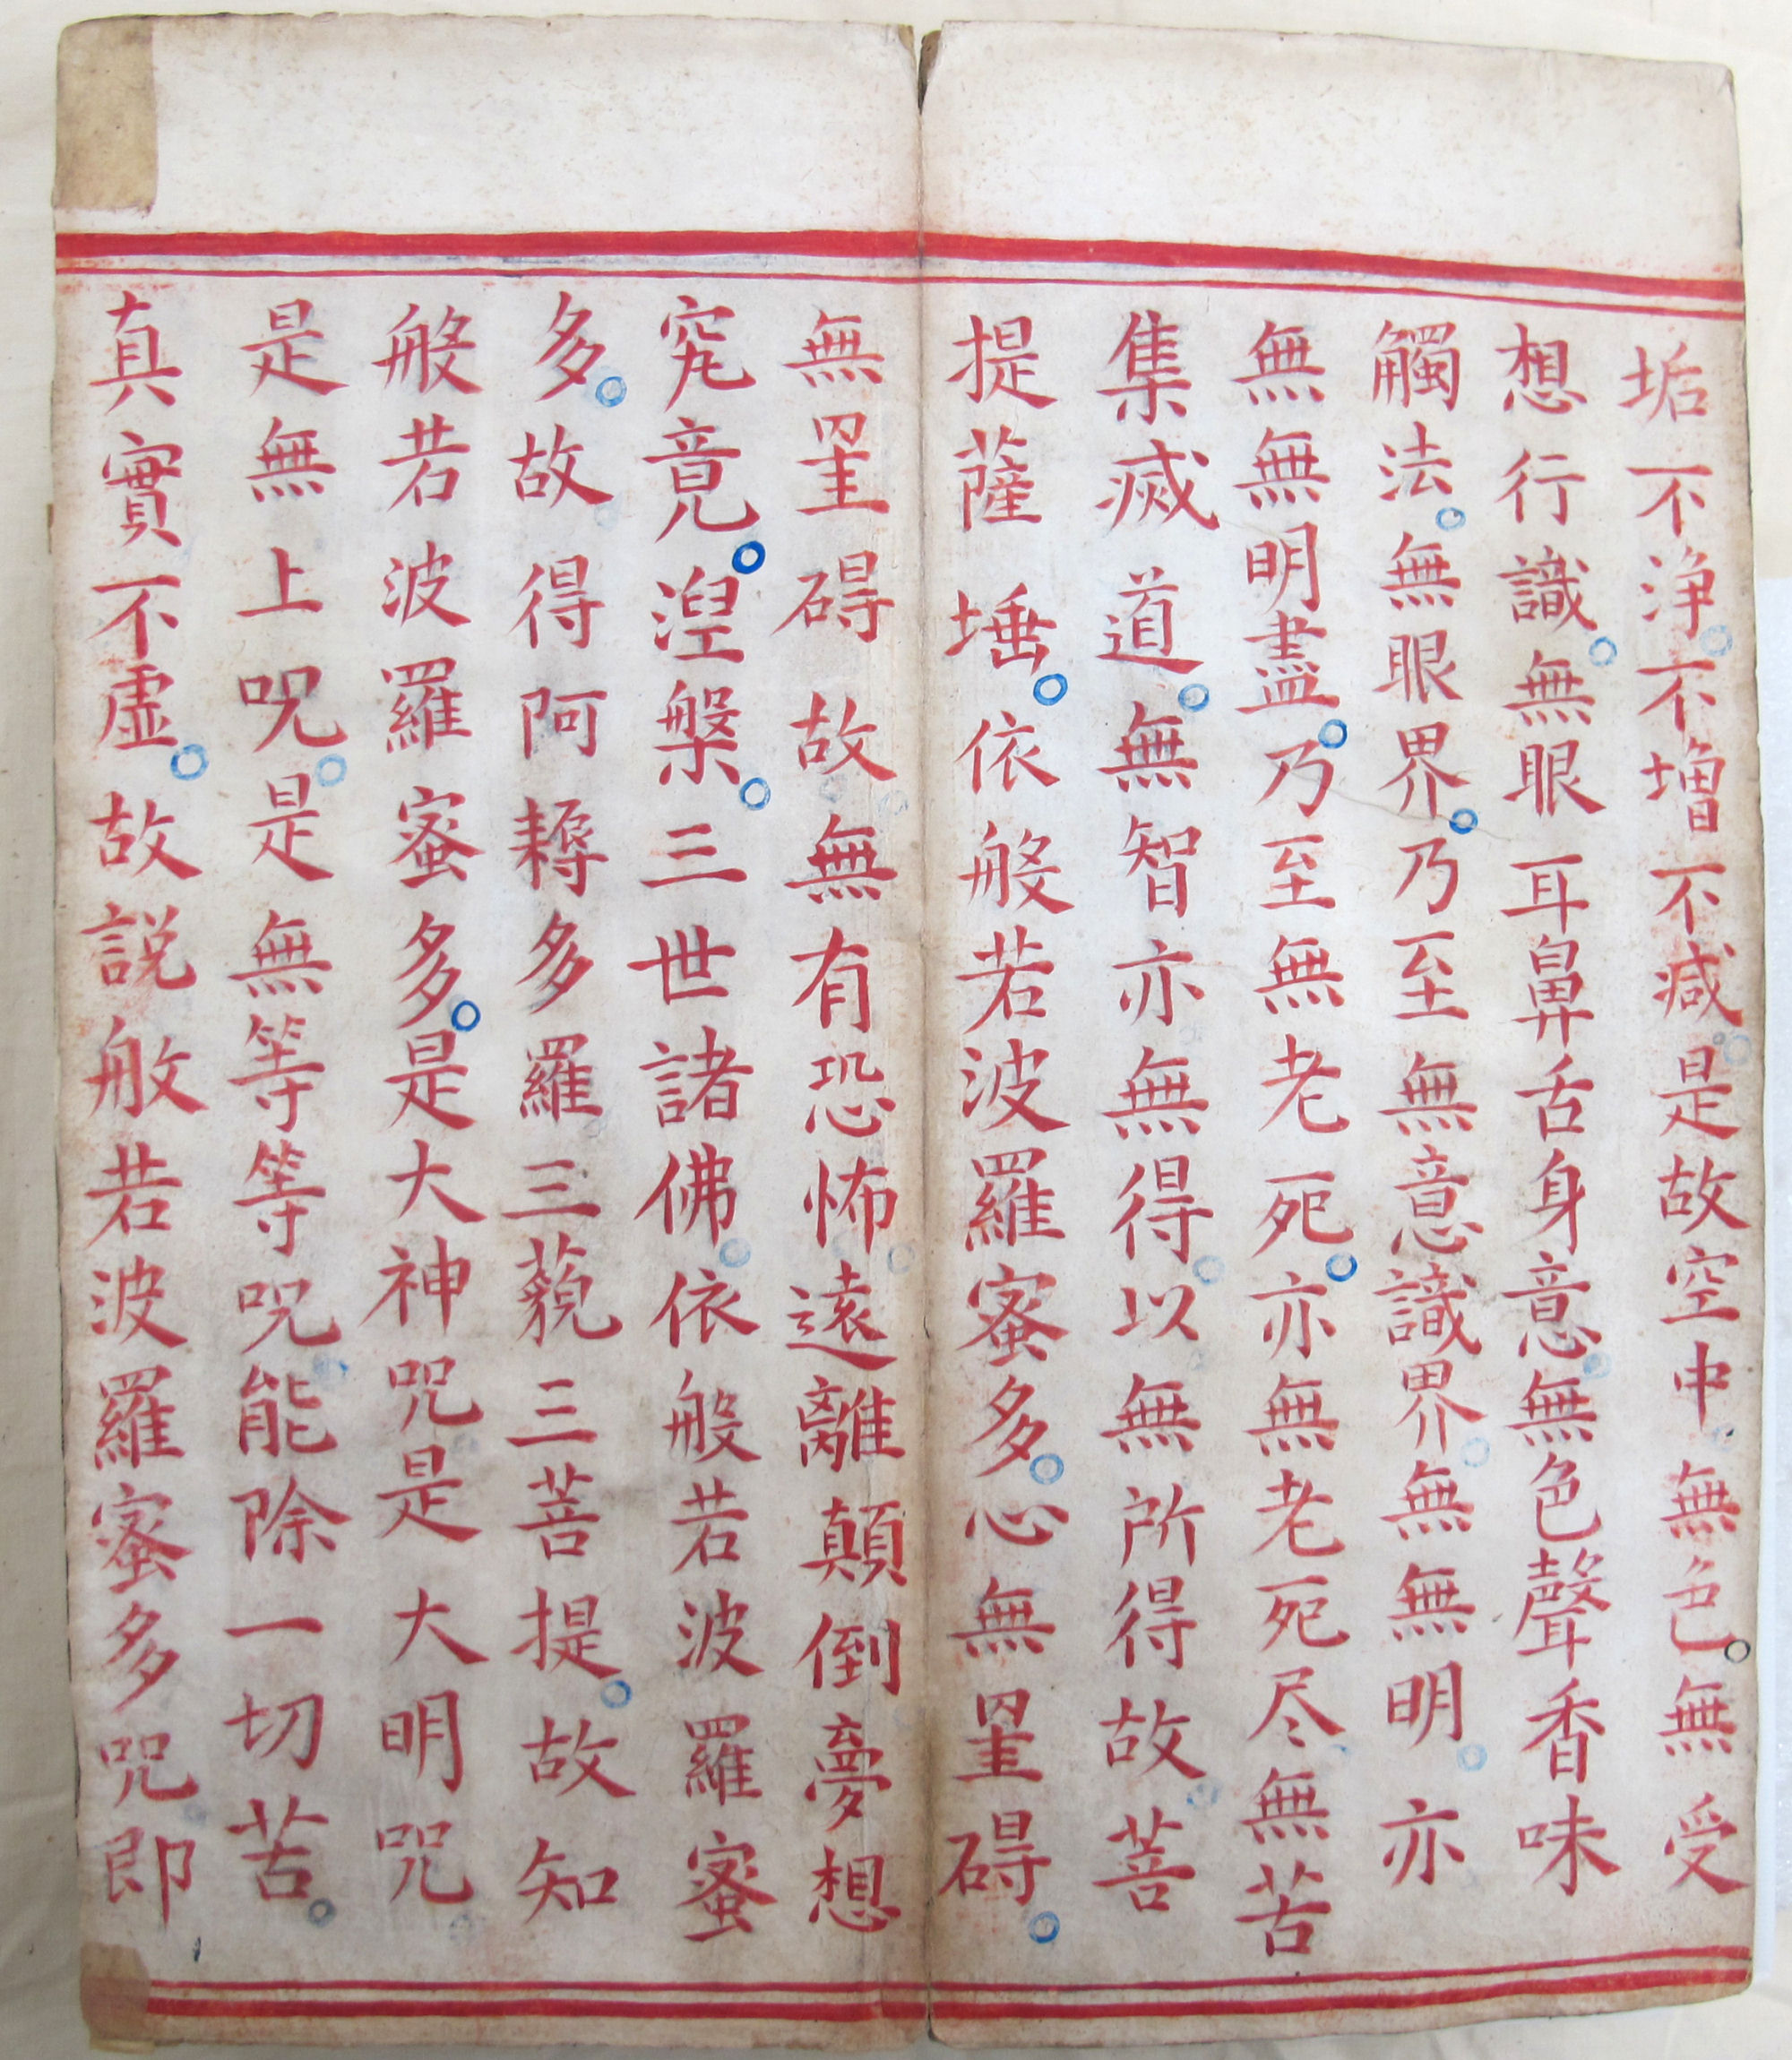 垢不淨。不增不减。是故空中。無色。無受
想行識。無眼耳鼻舌身意。無色聲香味
觸法。無眼界。乃至無意識界。無無明。亦
無無明盡。乃至無老死。亦無老死尽。無苦
集滅道。無智亦無得。以無所得故。菩
提薩埵。依般若波羅蜜多。心無罣碍。
無罣碍故。無有恐怖。遠離顛倒夢想
究竟。湼槃。三世諸佛。依般若波羅蜜
多。故得阿耨多羅三藐三菩提。故知
般若波羅蜜多。是大神咒。是大明咒。
是無上咒。是無等等咒。能除一切苦。
真實不虛。故説般若波羅蜜多咒。即